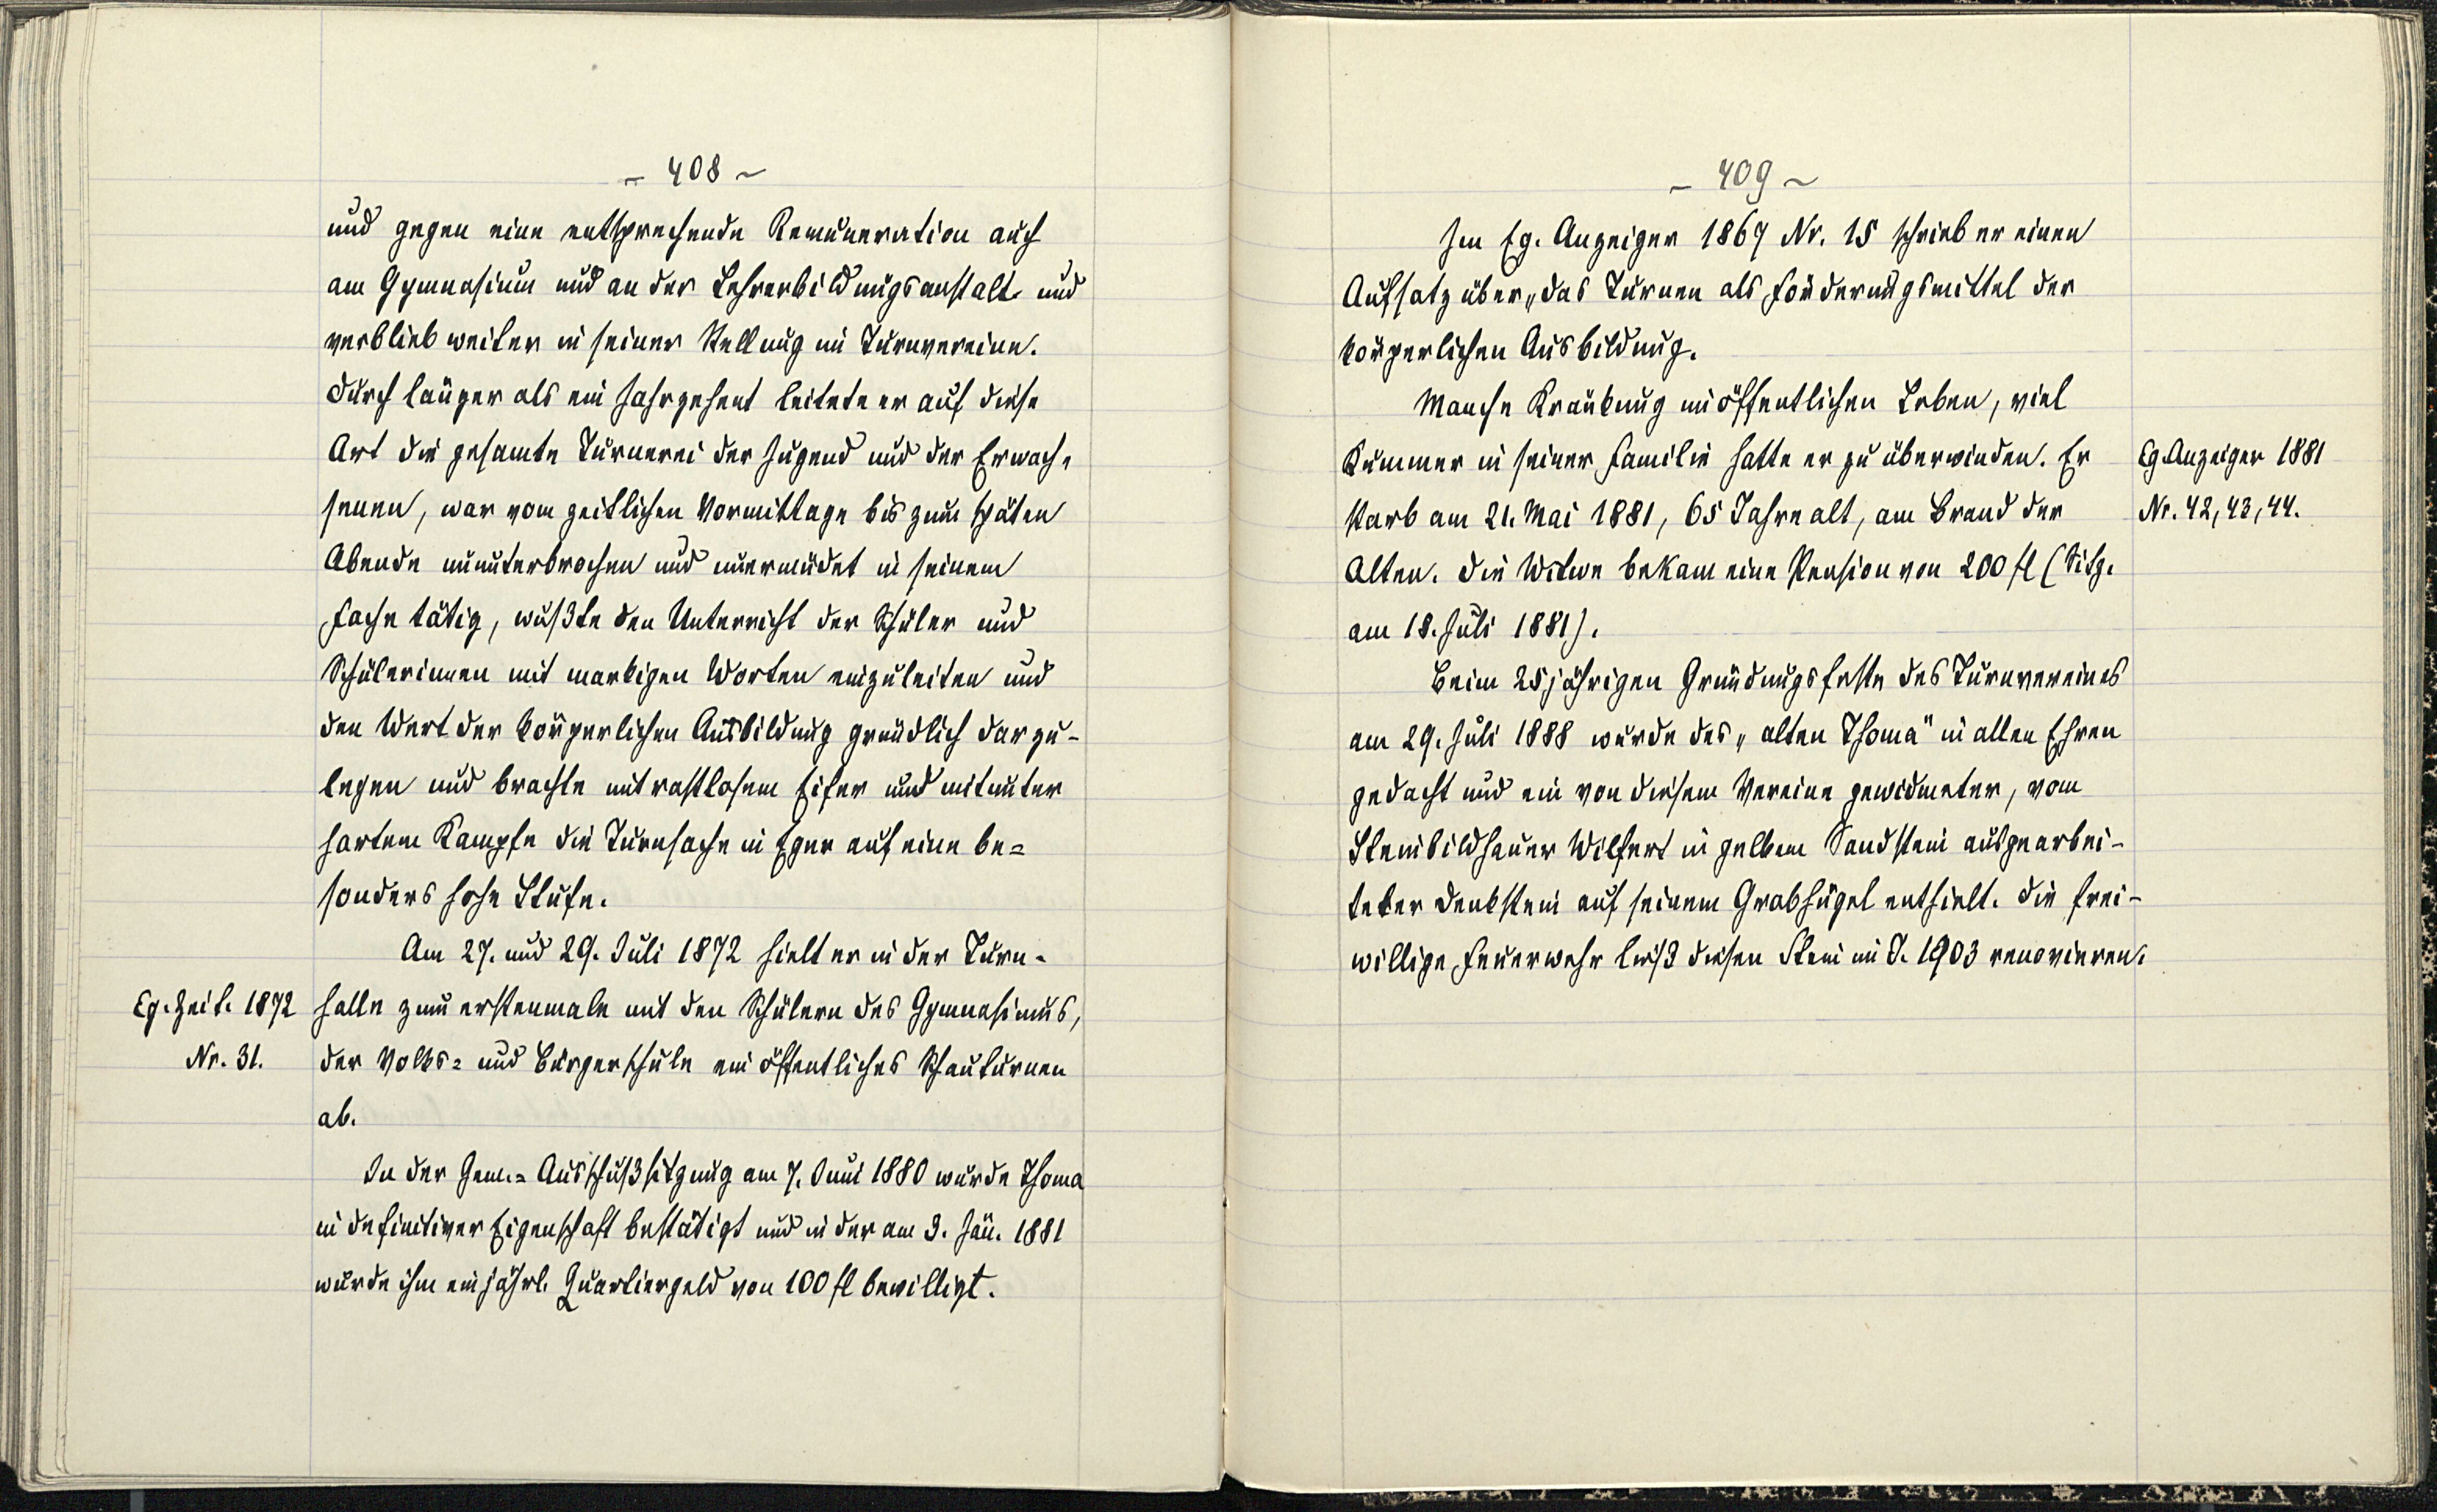 - 408 -
und gegen eine entsprechende Remuneration auch
am Gymnasium und an der Lehrerbildungsanstalt und
verblieb weiter in seiner Stellung im Turnvereine.
Durch länger als ein Jahrzehent leitete er auf diese
Art die gesamte Turnerei der Jugend und der Erwach-
senen, war vom zeitlichen Vormittage bis zum späten
Abende ununterbrochen und unermüdet in seinem
Fache tätig, wußte den Unterricht der Schüler und
Schülerinnen mit markigen Worten einzuleiten und
den Wert der körperlichen Ausbildung gründlich darzu-
legen und brachte mit rastlosem Eifer und mitunter
hartem Kampfe die Turnsache in Eger auf eine be=
sonders hohe Stufe.
Am 27. und 29. Juli 1872 hielt er in der Turn-
Eg. Zeit. 1872
Nr. 31.
halle zum erstenmale mit den Schülern des Gymnasiums,
der Volks= und Bürgerschule ein öffentliches Schauturnen
ab.
In der Gem.= Ausschußsitzung am 7. Juni 1880 wurde Thoma
in definitiver Eigenschaft bestätigt und in der am 3. Jän. 1881
wurde ihm ein jährl. Quartiergeld von 100 fl bewilligt.
- 409 -
Im Eg. Anzeiger 1867 Nr. 15 schrieb er einen
Aufsatz über „das Turnen als Förderungsmittel der
körperlichen Ausbildung.
Manche Kränkung im öffentlichen Leben, viel
Kummer in seiner Familie hatte er zu überwinden. Er
starb am 21. Mai 1881, 65 Jahre alt, am Brand der
Alten. Die Witwe bekam eine Pension von 200 fl (Sitz.
am 18. Juli 1881).
Eg. Anzeiger 1881
Nr. 42, 43, 44.
Beim 25jährigen Gründungsfeste des Turnvereines
am 29. Juli 1888 wurde des „alten Thoma" in allen Ehren
gedacht und ein von diesem Vereine gewidmeter, vom
Steinbildhauer Wilfert in gelbem Sandstein ausgearbei-
teter Denkstein auf seinem Grabhügel enthielt. Die frei-
willige Feuerwehr ließ diesen Stein im J. 1903 renovieren.